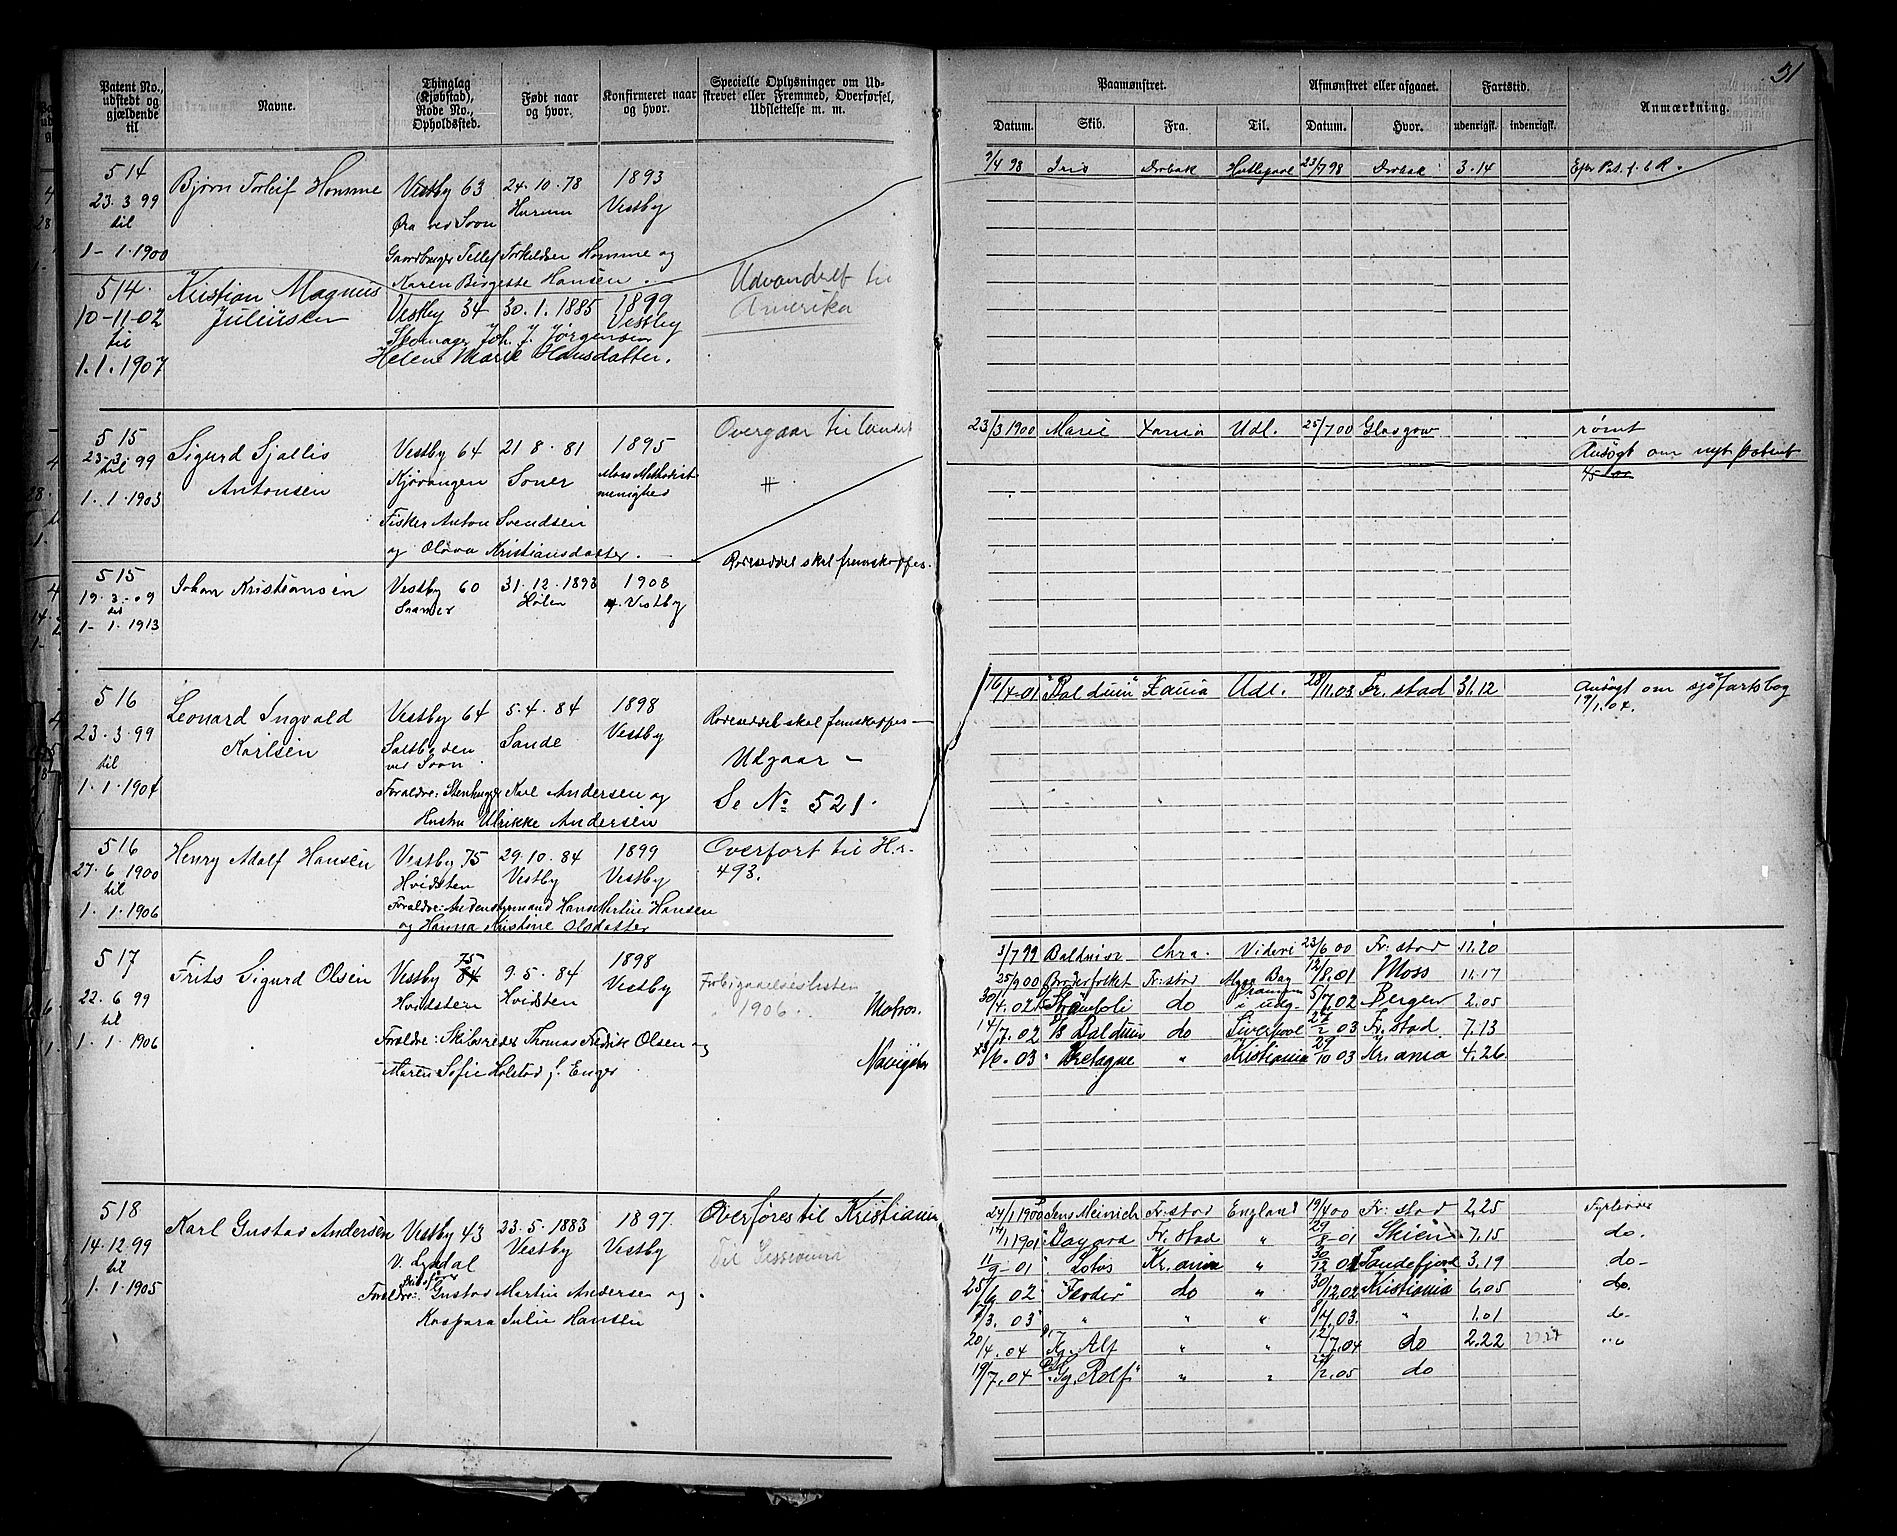 31
Patent No., udstedt og gjældende til
Navne.
Thinglag (Kjøbstad), Rode No., Opholdssted.
Født naar og hvor.
Konfirmeret naar og hvor.
Specielle Oplysninger om Udskrevet eller Fremmed, Overførsel, Udslettelse m. m.
Paamønstret.
Afmønstret eller afgaaet.
Fartstid.
Anmærkning.
Datum. Skib. Fra. Til. Datum. Hvor. udenrigsk. indenrigsk.
514 Bjørn Torleif Homme Vestby 63 24.10.78 1893
23.3.99 Hurum Vestby
til Øra ved Soon
1-1.1900 Gaardbruger Tellef Torkildsen Homme og
Karen Birgette Hansen.
9/4 98 Iris Drøbak 23/7 98 Drøbak 3.14
514. Kristian Magnus Vestby 34 30.1.1885 1899 Udvandret til
10-11-02 Juliussen Vestby Amerika
til Skomager Joh. J. Jørgensen
1.1.1907 Helene Marie Hansdatter.
515 Sigurd Vestby 64 21.8.81 1895 Overgaar til landet
23-3-99 Antonsen Soner Moss Methodist
til menighed
1.1.1903 Fisker Anton Svendsen
og Kristiansdatter.
23/3 1900 Marie Udl. 25/7 00 Glasgow rømt
Ansøgt om nyt patent
515 Johan Kristiansen Vestby 60 31.12.1893 1908 Rodeseddel skal fremskaffes.
19.3.09 Hølen Vestby
til
1-1.1913
516 Leonard Ingvald Vestby 64 5.4.84 1898 Rodeseddel skal fremskaffes -
23.3.99 Karlsen Sande Vestby Udgaar -
til ved Soon
1.1.1904 Karl Andersen og Se No 521.
Hustru Ulrikke Andersen
16/4-01 "Balduin" Udl. 28/11.03 Fr.stad 31.12 Ansøgt om sjøfartsbog
19/1.04.
516 Henry Adolf Hansen Vestby 75 29.10.84 1899 Overført til Hr.
27.6.1900 Hvidsten Vestby Vestby 493.
til
1.1.1906 Forældre: Hans Martin Hansen
og Hanna Kristine Olsdatter
517 Frits Sigurd Olsen Vestby 75 84 9.5.84 1898
22.6.99 Hvidsten Hvidsten Vestby 1906. Matros.
til
1.1.1906 Forældre: Thomas Fredrik Olsen og
Maren Sofie Holstad f. Enger
3/7 99 Chra. 23/6 00 Fr.stad 11.20
25/9 00 Fr.stad 12/8.01 Moss 11.17
30/4.02 do i udg. 5/7.02 Bergen 2.05
14/7.02 Balduin do Liverpool 27/2 03 Fr.stad 7.13
Bretagne " Kristiania 29/10 03 Kr.ania 4.26
518 Karl Gustav Andersen Vestby 43 23.5.1883 1897. Overføres til Kristiania
14.12.99 Vestby Vestby
til
1.1.1905 Forældre: Gustav Martin Andersen og
Kaspara Julie Hansen
24/1 1900 Jens Meinich Fr.stad England 19/4 00 Fr.stad 2.25 Fyrbøder
14/1 1901 Fr.stad " 29/8-01 Skien 7.15 do.
11/9-01 Lotos Kr.ania " 30/12 01 Sandefjord 3.19 do-
25/6 02 do " 30/12.02 Kristiania 6.05 do.
3.03 " " " 8/4.03. " 1.01 do-
20/4.04 Alf " " 12/7.04 do 2.22
19/7.04 Rolf " " 2.05 do